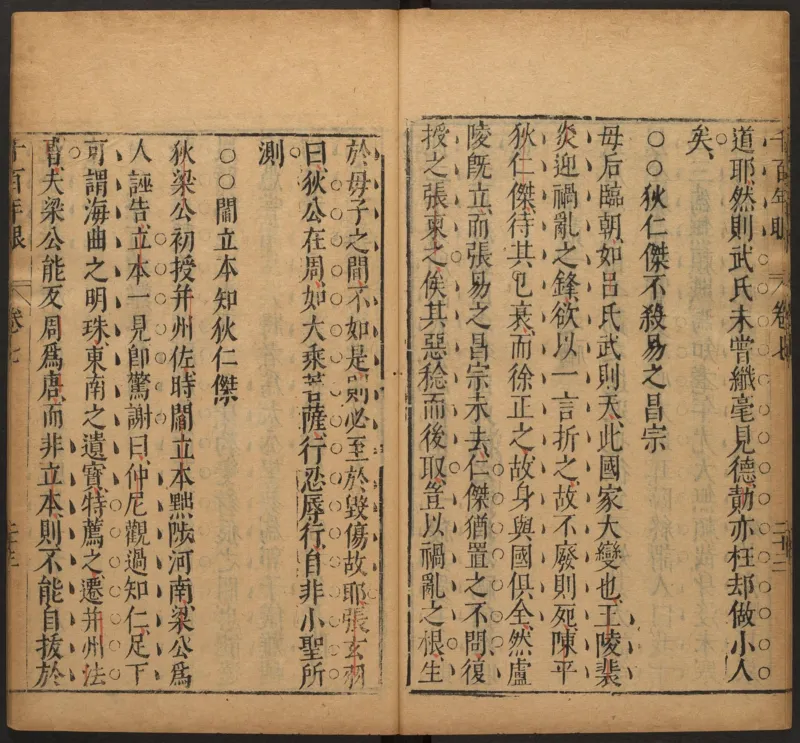 千百年眼 卷七 二十二
道耶然則武氏未嘗纖毫見德勣亦枉却做小人
矣
○○狄仁傑不殺易之昌宗
母后臨朝如呂氏武則天此國家大變也王陵裴
炎迎禍亂之鋒欲以一言折之故不廢則死陳平
狄仁傑待其已衰而徐正之故身與國俱全然盧
陵旣立而張易之昌宗未去仁傑猶置之不問復
授之張柬之俟其惡稔而後取豈以禍亂之根生
於母子之間不如是則必至於毀傷故耶張玄羽
曰狄公在周如大乘菩薩行忍辱行自非小聖所
測
○○閻立本知狄仁傑
狄梁公初授幷州佐時閻立本黜陟河南梁公爲
人誣告立本一見卽驚謝曰仲尼觀過知仁足下
可謂海曲之明珠東南之遺寶特薦之遷幷州法
曹夫梁公能反周爲唐而非立本則不能自拔於
千百年眼 卷七